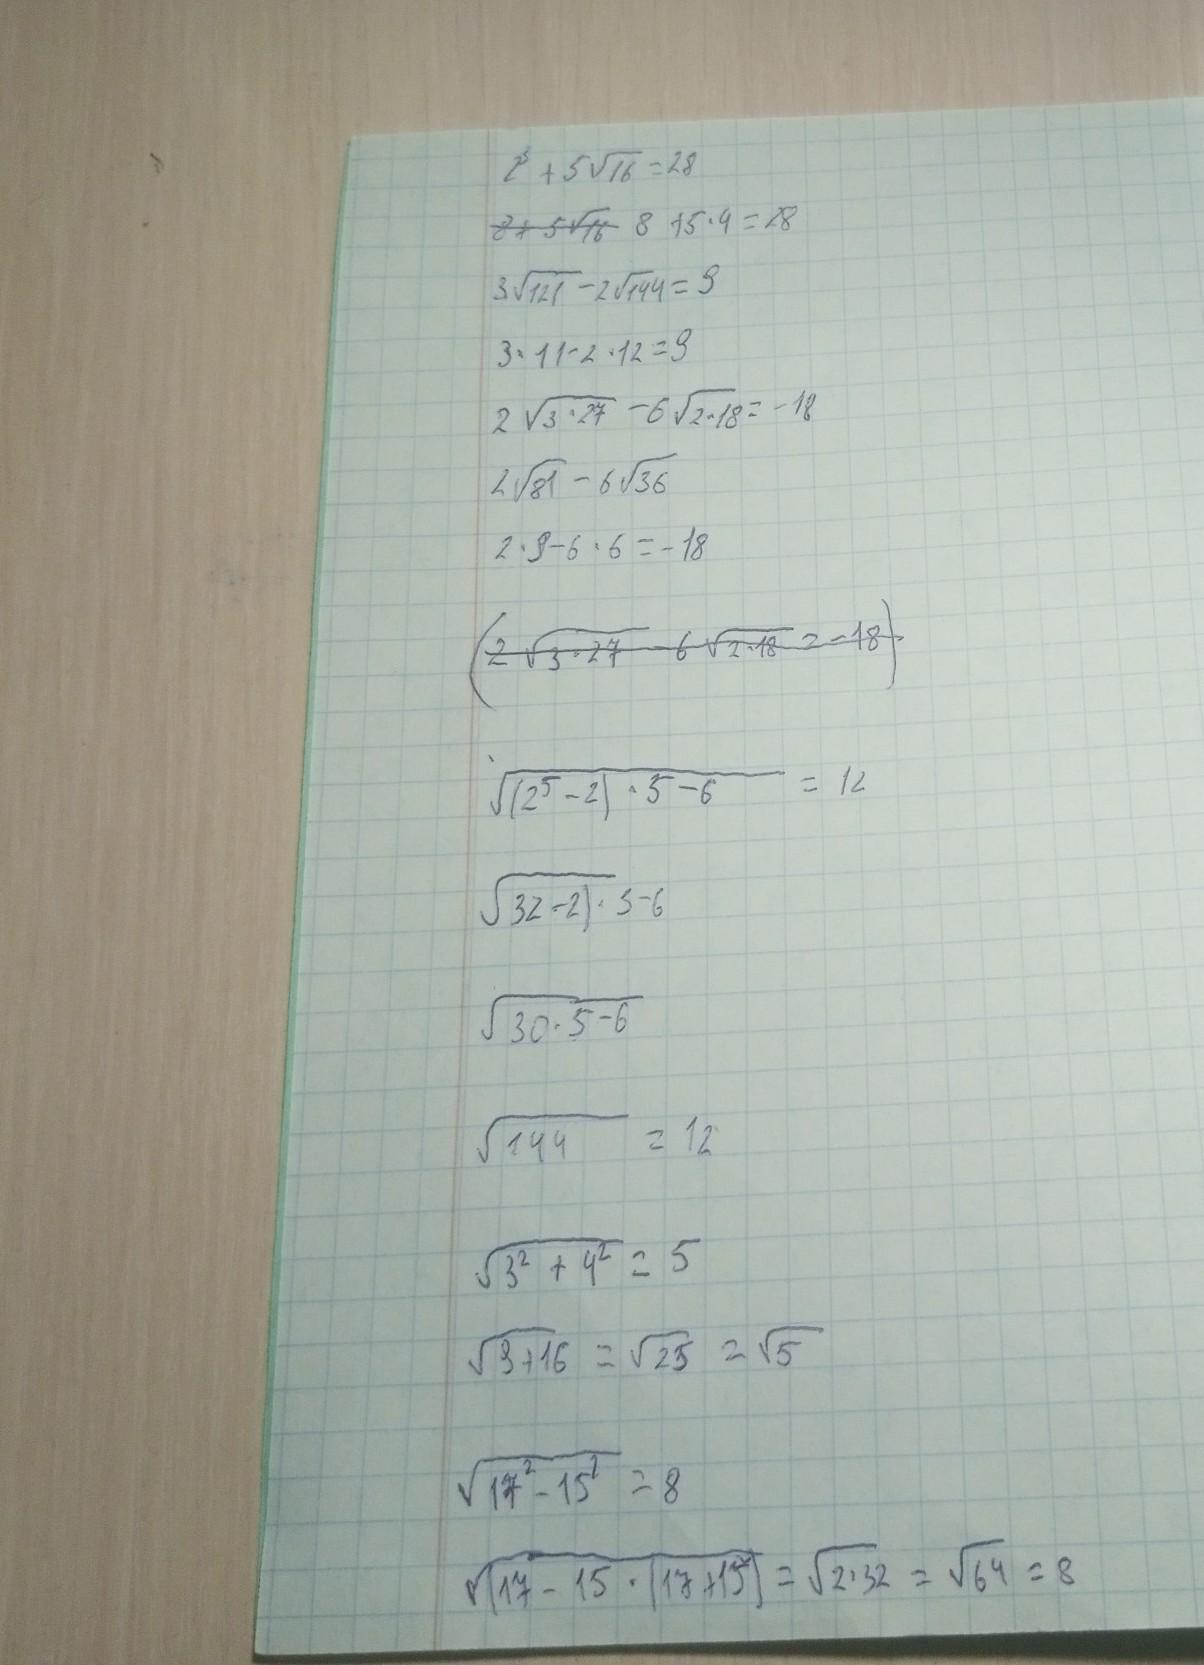 2³ + 5√16 = 28
8 + 5√16 8 + 5·4 = 28
3√121 - 2√144 = 9
3·11-2·12 = 9
2√3·27 - 6√2·18 = -18
2√81 - 6√36
2·9-6·6 = -18
(2√3·27 - 6√2·18 = -18)
√(2⁵-2)·5-6 = 12
√32-2)·5-6
√30·5-6
√144 = 12
√3² + 4² = 5
√9+16 = √25 = √5
√17² - 15² = 8
√(17 - 15·(17+15) = √2·32 = √64 = 8